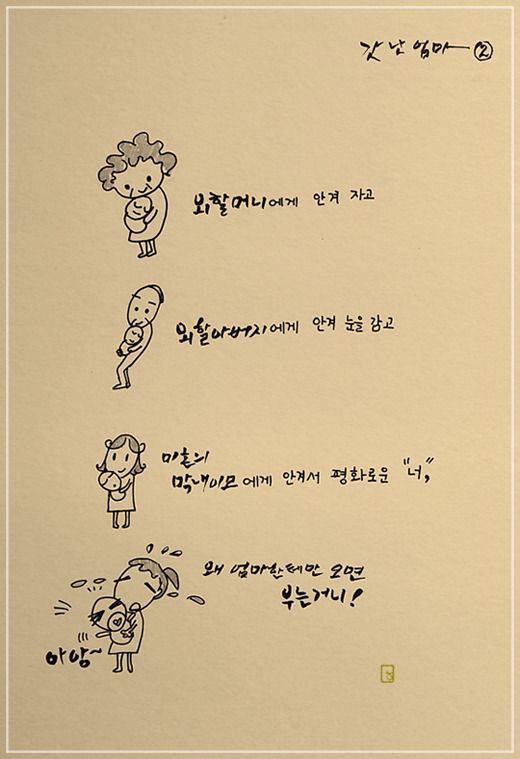 갓 난 엄마 ②
외할머니에게 안겨 자고
외할아버지에게 안겨 눈을 감고
미혼의
막내이모에게 안겨서 평화로운 "너",
왜 엄마한테만 오면
우는거니!
아앙~